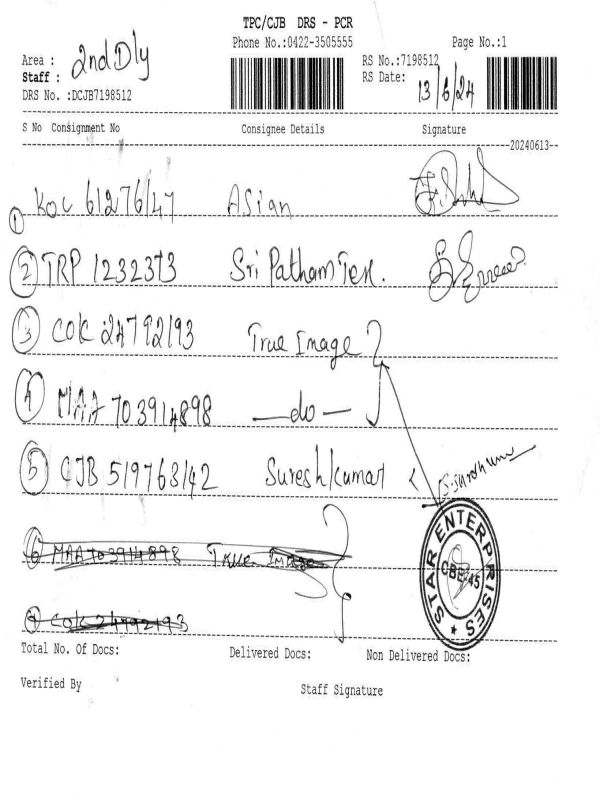 TPC/CJB DRS - PCR
Phone No.:0422-3505555 Page No.:1
Area : 2nd Dly
Staff :
DRS No. :DCJB7198512
RS No.:7198512
RS Date: 13/6/24
S No Consignment No Consignee Details Signature
20240613--
1 KOC 61276147 Asian
2 TRP 1232373 Sri Patham Tex.
3 COK 24792193 True Image
4 MAA 703914898 —do—
5 CJB 519763142 Sureshkumar
6 MAA 703914898 True Image
7 COK 24792193
STAR ENTERPRISES
CBE-45
Total No. Of Docs: Delivered Docs: Non Delivered Docs:
Verified By Staff Signature